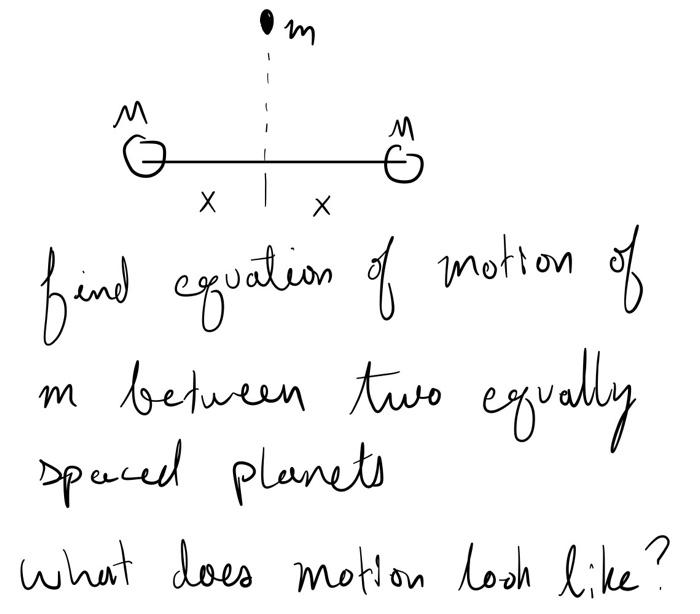 m
M M
x x
find equation of motion of
m between two equally
spaced planets
What does motion look like?